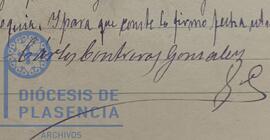 y para que conste lo firmo fecha
Carlos Contreras Gonzalez
DIÓCESIS DE
PLASENCIA
ARCHIVOS